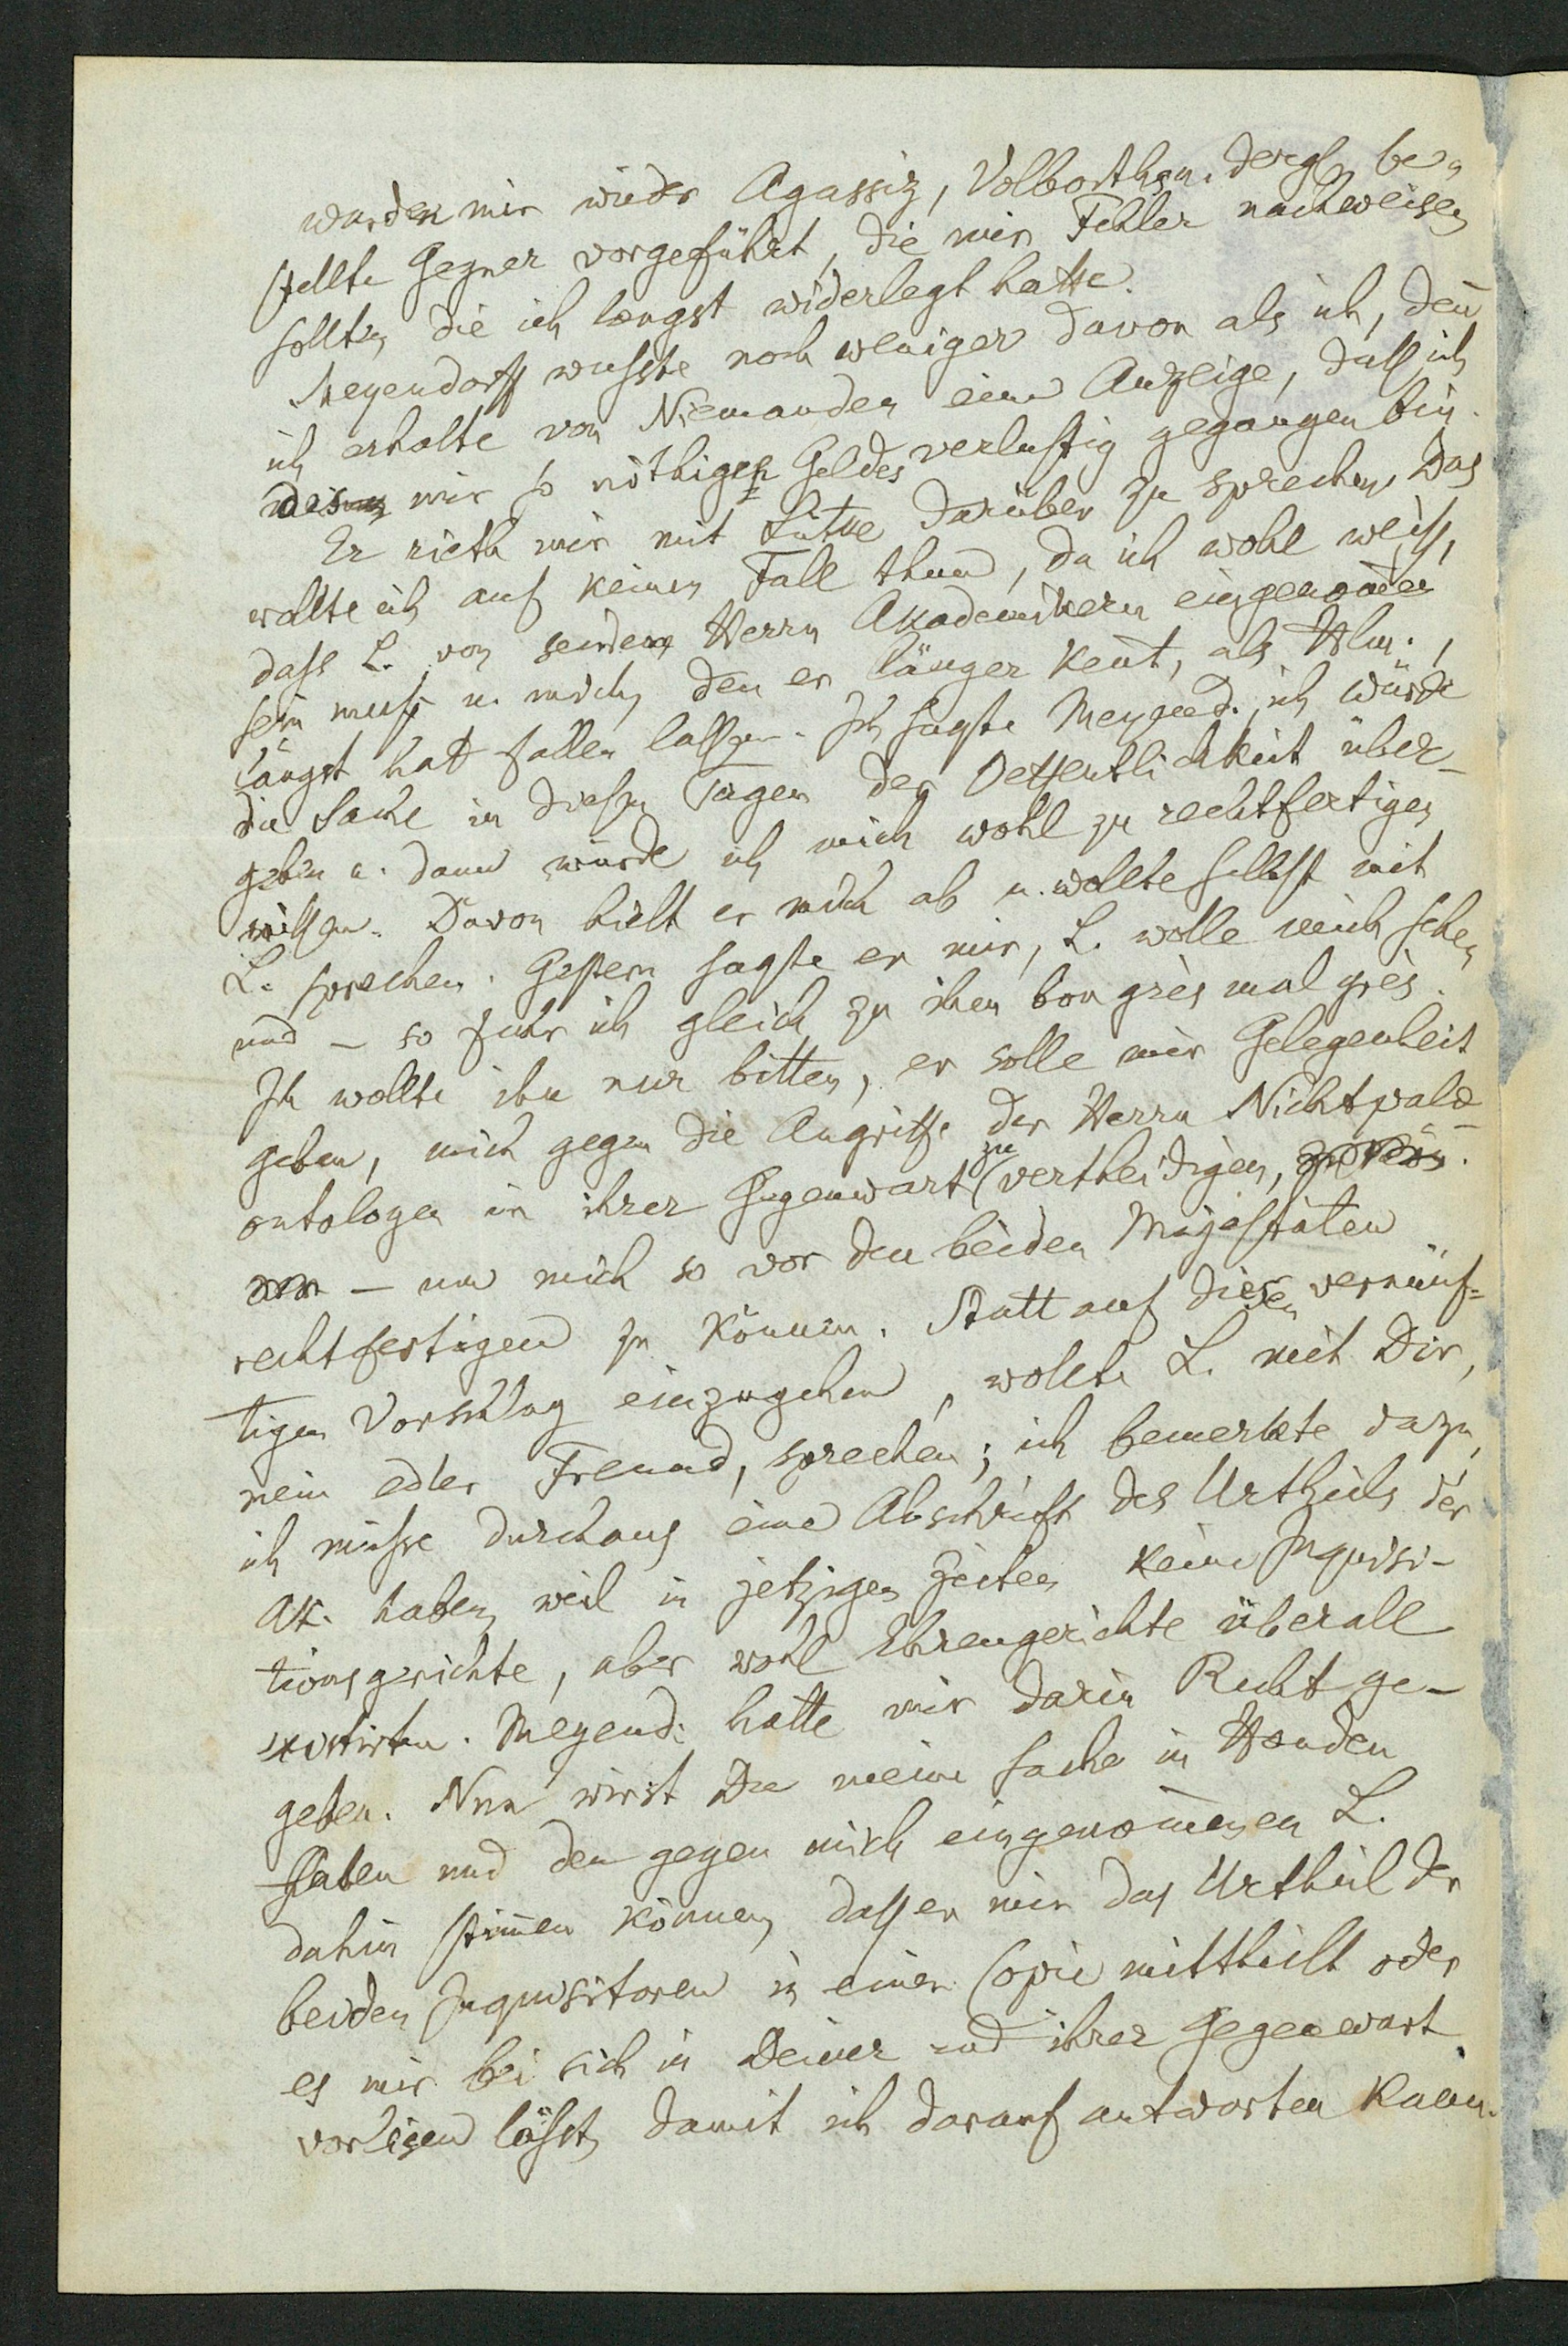 wurden mir wieder Agassiz, Volborth u. dergl. be-
stellte Gegner vorgeführt, die mir Fehler nachweisen
sollten, die ich laengst widerlegt hatte.
Meyendorff wusste noch weniger davon als ich, deñ
ich erhalte von Niemanden eine Anzeige, dass ich
des mir so nöthigen Geldes verlustig gegangen bin.
Er rieth mir mit Lütke darüber zu sprechen. Das
wollte ich auf keinen Fall thun, da ich wohl weiss,
dass L. von seinen Herrn Akademikern eingenom̃en
sein muss u. mich, den er länger keñt, als Hlm.,
längst hat fallen lassen. Ich sagte Meyend., ich würde
die Sache in diesen Tagen der Oeffentlichkeit über-
geben u. dann würde ich mich wohl zu rechtfertigen
wissen. Davon hielt er mich ab u. wollte selbst mit
L. sprechen. Gestern sagte er mir, L. wolle mich sehen
und – so fuhr ich gleich zu ihm bon grès mal grès.
Ich wollte ihn nur bitten, er solle mir Gelegenheit
geben, mich gegen die Angriffe der Herrn Nichtpalae-
ontologen in ihrer Gegenwart zu vertheidigen,
– um mich so vor den beiden Majestäten
rechtfertigen zu können. Statt auf diesen vernünf-
tigen Vorschlag einzugehen, wollte L. mit Dir,
mein edler Freund, sprechen; ich bemerkte dazu,
ich müsse durchaus eine Abschrift des Urtheils der
Ak. haben, weil in jetzigen Zeiten keine Inquisi-
tionsgerichte, aber wohl Ehrengerichte überall
existirten. Meyend. hatte mir darin Recht ge-
geben. Nun wirst Du meine Sache in Händen
haben und den gegen mich eingenom̃enen L.
dahin stim̃en können, dass er mir das Urtheil der
beiden Inquisitoren in einer Copie mittheilt oder
es mir bei sich in Deiner und ihrer Gegenwart
vorlesen lässt, damit ich darauf antworten kann.